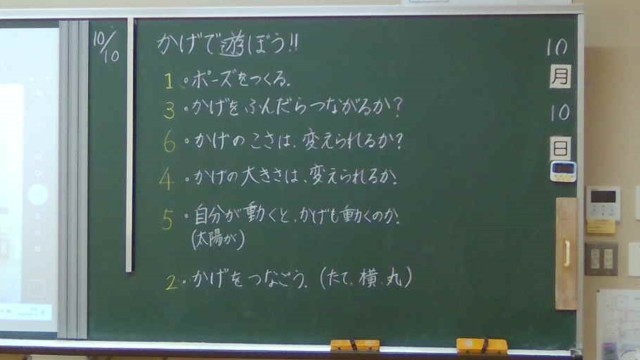 10/10
かげで遊ぼう!!
1 ○ポーズをつくる。
3 ○かげをふんだらつながるか?
6 ○かげのこさは、変えられるか?
4 ○かげの大きさは、変えられるか。
5 ○自分が動くと、かげも動くのか。
(太陽が)
2 ○かげをつなごう。(たて、横、丸)
10
月
10
日